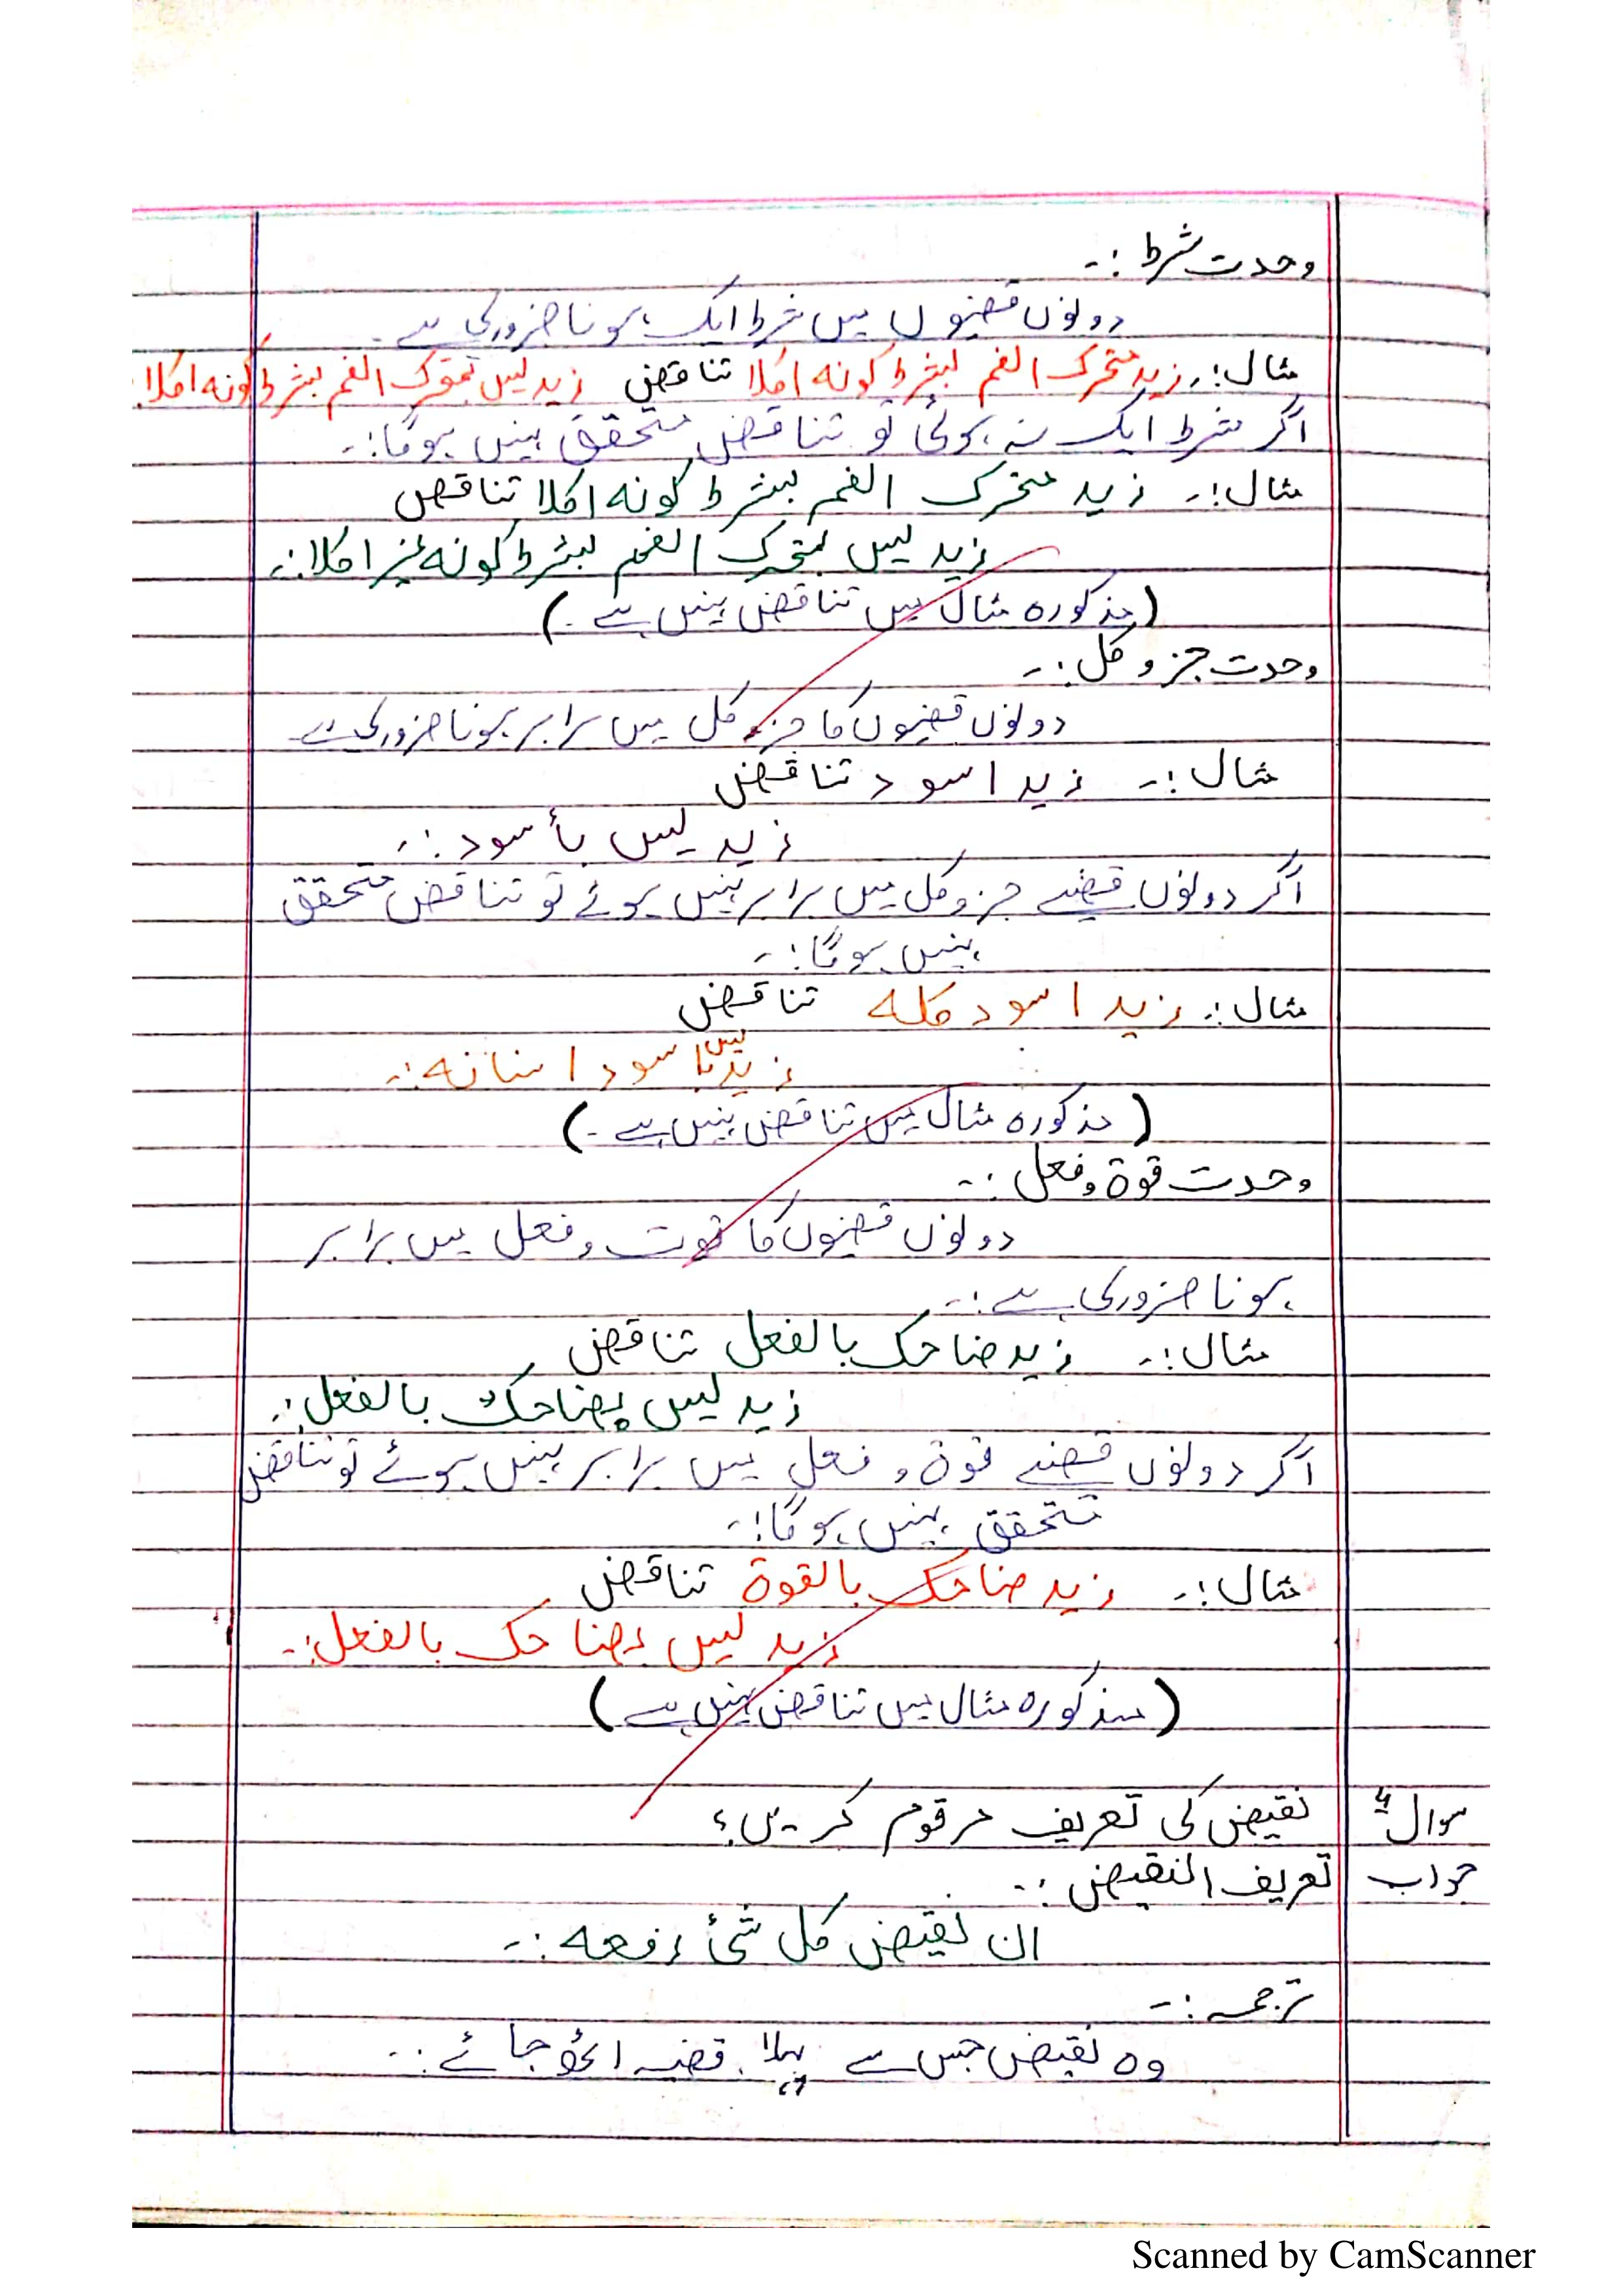 وحدت شرط :۔
دونوں قضیوں میں شرط ایک ہونا ضروری ہے۔
مثال :۔ زید متحرک الفم بشرط کونہ اکلا تناقض زید لیس بمتحرک الفم بشرط کونہ اکلا :
اگر شرط ایک نہ ہوئی تو تناقض متحقق نہیں ہوگا :۔
مثال :۔ زید متحرک الفم بشرط کونہ اکلا تناقض
زید لیس بمتحرک الفم بشرط کونہ غیر اکلا :۔
(مذکورہ مثال میں تناقض نہیں ہے۔)
وحدت جز و کل :۔
دونوں قضیوں کا جز و کل میں برابر ہونا ضروری ہے۔
مثال :۔ زید اسود تناقض
زید لیس بأسود :۔
اگر دونوں قضیے جز و کل میں برابر نہیں ہوئے تو تناقض متحقق
نہیں ہوگا :۔
مثال :۔ زید اسود کلہ تناقض
زید لیس باسود اسنانہ :۔
(مذکورہ مثال میں تناقض نہیں ہے۔)
وحدت قوۃ و فعل :۔
دونوں قضیوں کا قوت و فعل میں برابر
ہونا ضروری ہے :۔
مثال :۔ زید ضاحک بالفعل تناقض
زید لیس بضاحک بالفعل :۔
اگر دونوں قضیے قوۃ و فعل میں برابر نہیں ہوئے تو تناقض
متحقق نہیں ہوگا :۔
مثال :۔ زید ضاحک بالقوۃ تناقض
زید لیس بضاحک بالفعل :۔
(مذکورہ مثال میں تناقض نہیں ہے)
سوال نقیض کی تعریف مرقوم کریں؟
جواب تعریف النقیض :۔
ان نقیض کل شئ رفعہ :۔
ترجمہ :۔
وہ نقیض جس سے پہلا قضیہ اٹھ جائے :۔
Scanned by CamScanner